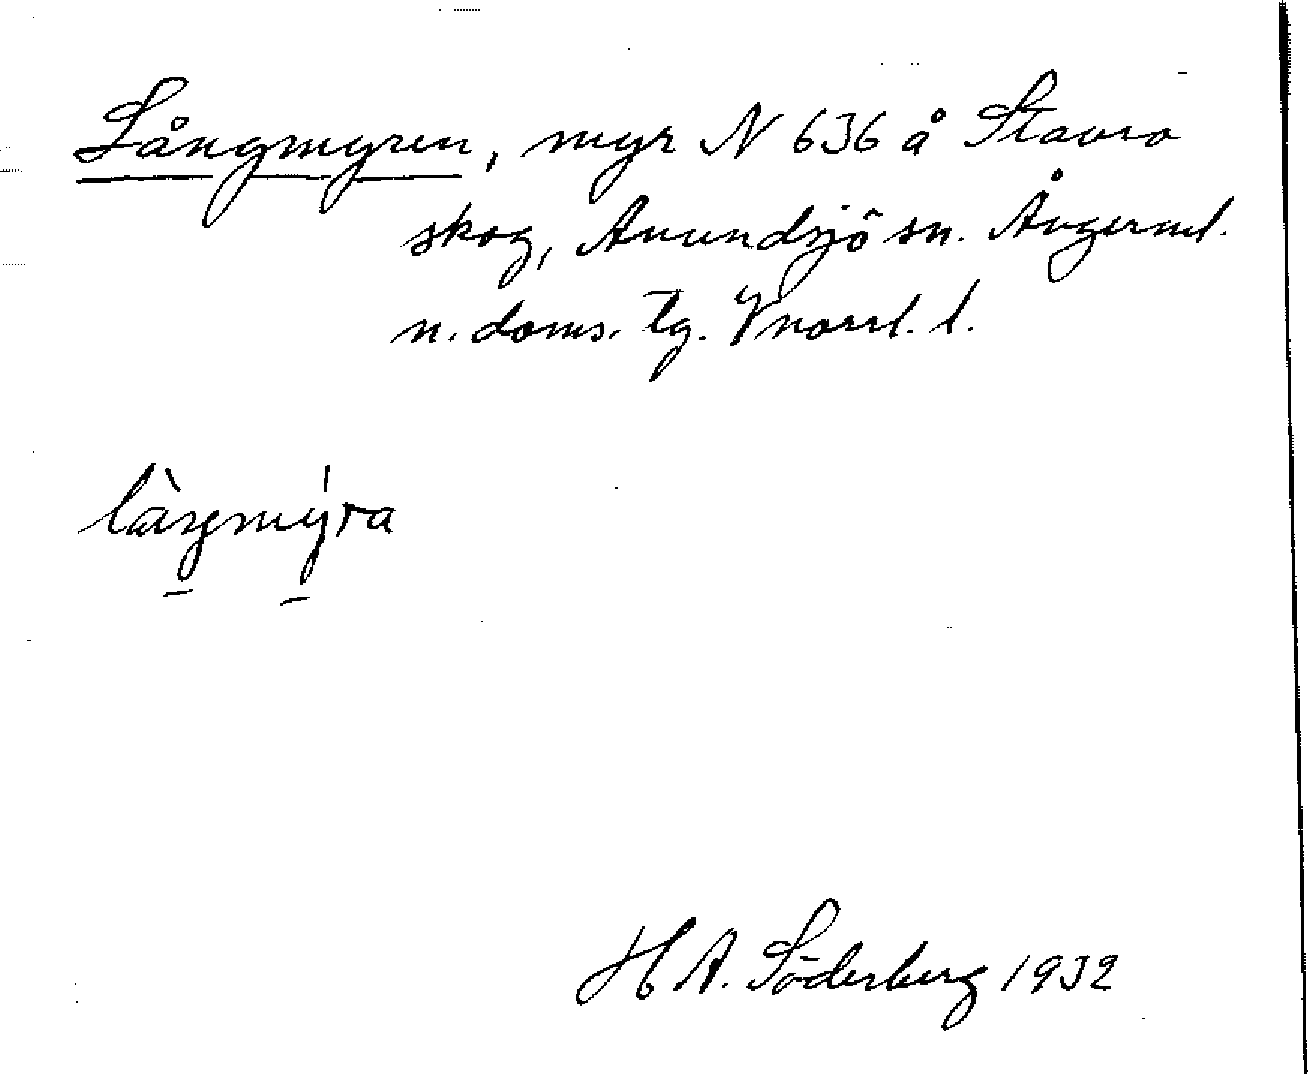 Långmyren, myr N 636 å Stavro
skog, Anundsjö sn. Ångerml.
n. doms. tg. Ynorrl. l.
làŋmy̍ra
H A. Söderberg 1932